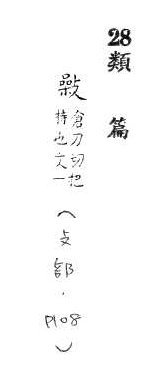 28類篇
倉刀切把
持也文一
(攴部.P108)